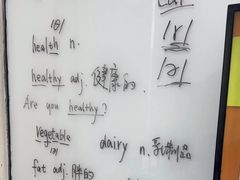 /θ/
health n.
healthy adj. 健康的.
Are you healthy?
vegetable
dairy n. 乳制品
fat adj. 胖的
/r/